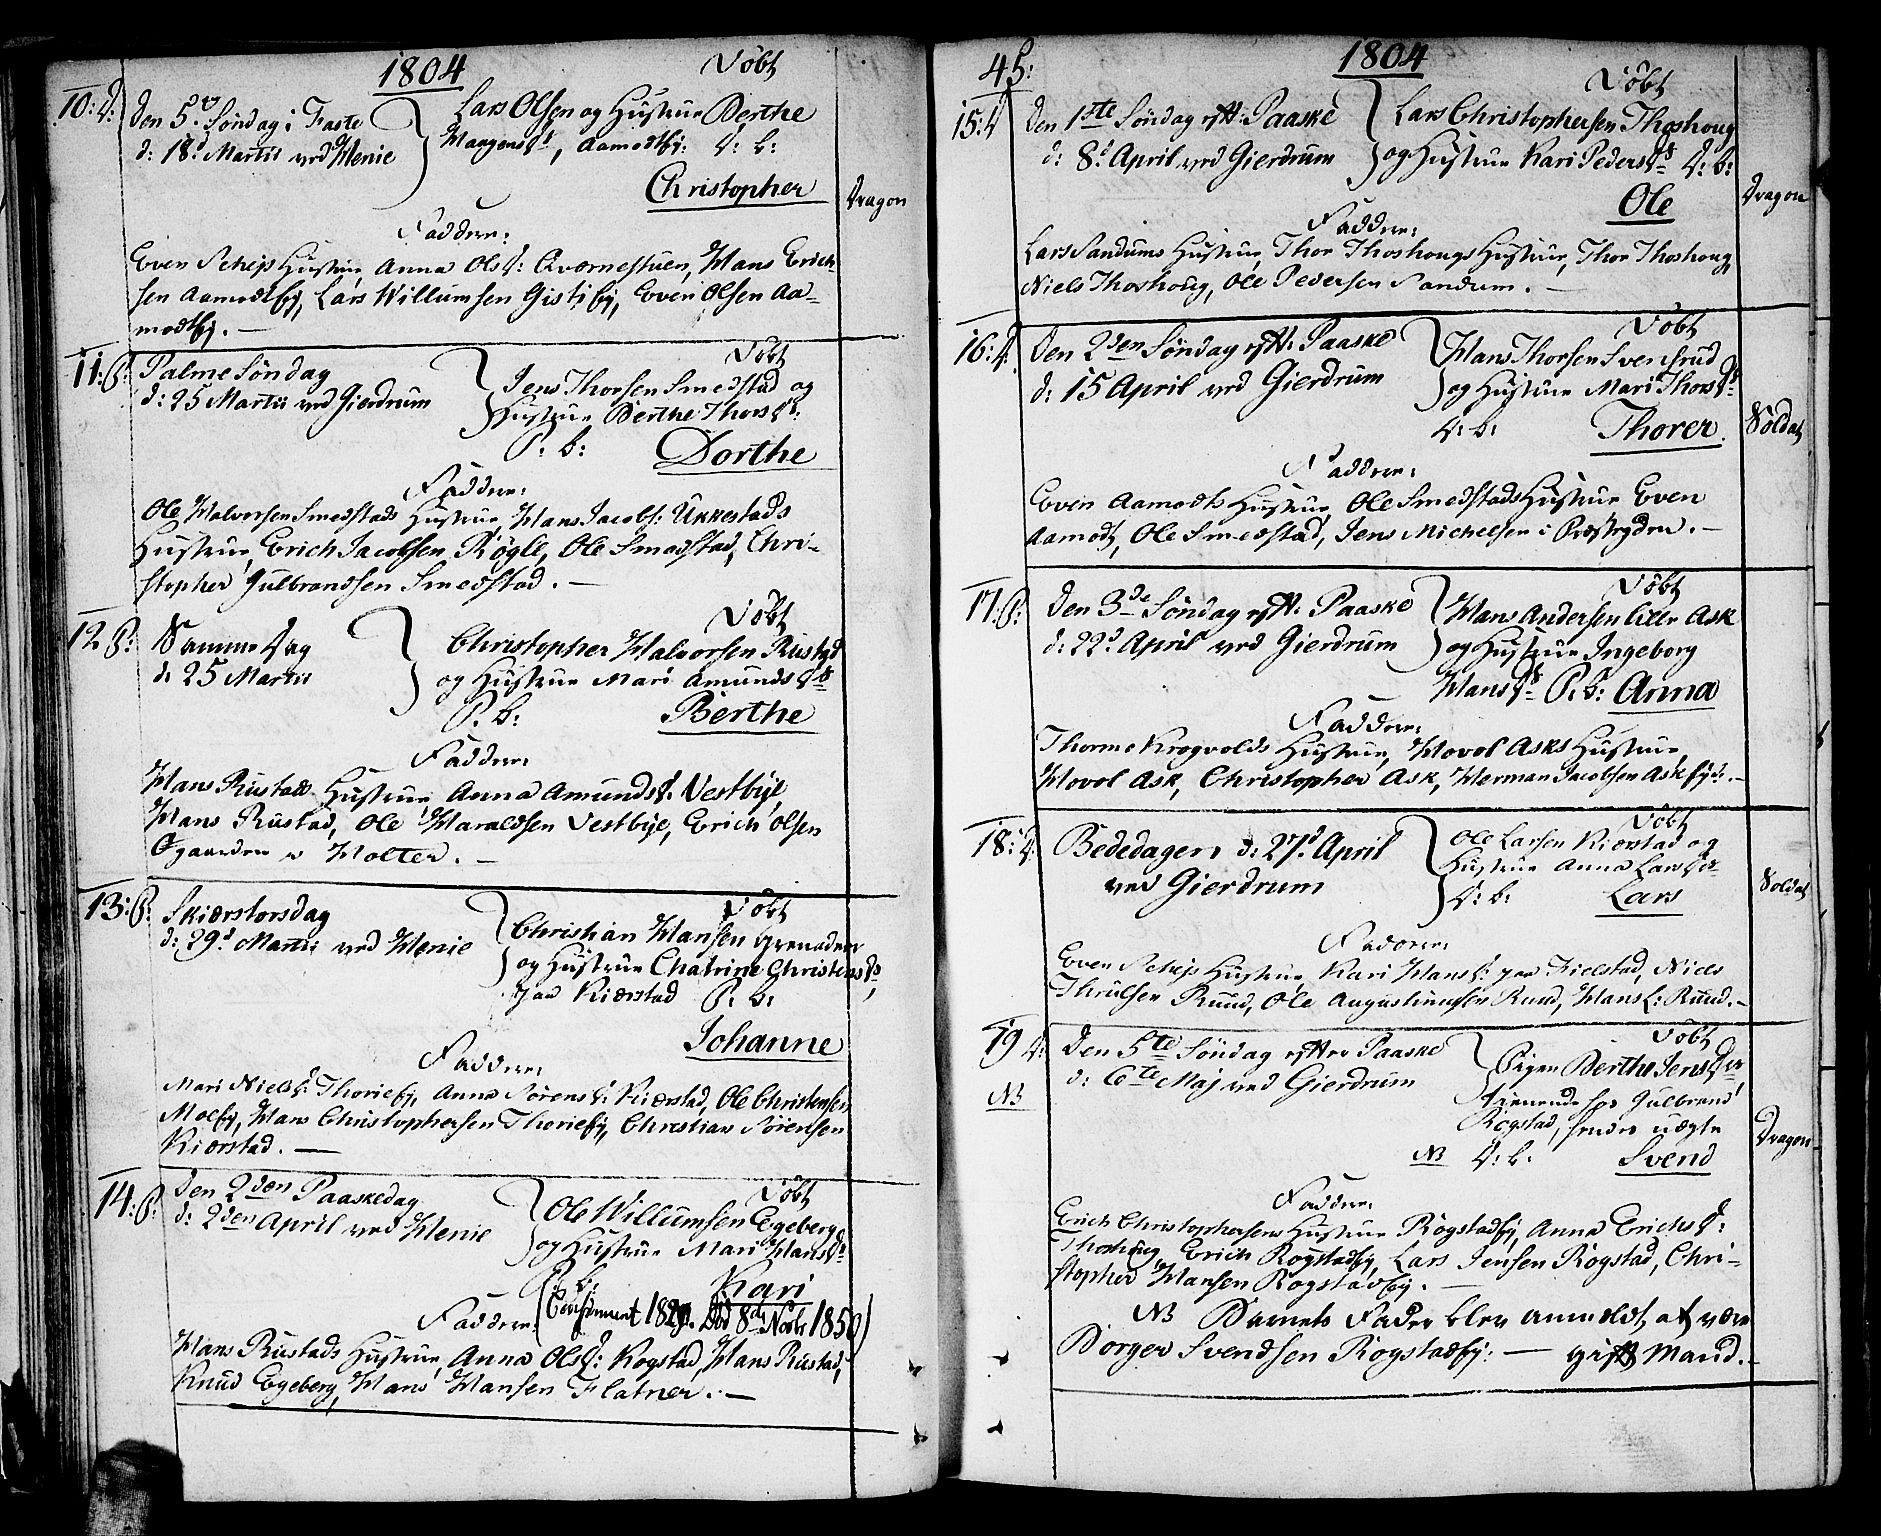 1804
10: D:
Døbt
Den 5te Søndag i Faste
d: 18d Martii ved Henie
Lars Olsen og Hustrue Berthe
Mangensd:, Aamodtby: D: b:
Christopher
Dragon
Faddere:
Even Schejs Hustrue, Anna Olsd: Qværnestuen, Hans Erich-
sen Aamodtby, Lars Willumsen Gistiby, Even Olsen Aa-
modtby. —
11: P:
Døbt
Palme Søndag
d: 25 Martii ved Gierdrum
Jens Thorsen Smedstad og
Hustrue Berthe Thorsdr:
P: b: Dorthe
Faddere:
Ole Halvorsen Smedstads Hustrue, Hans Jacobs: Ukkestads
Hustrue, Erich Jacobsen, Røgle, Ole Smedstad, Chri-
stopher Gulbrandsen Smedstad. —
12 P:
Døbt
Samme Dag
d: 25 Martii
Christopher Halvorsen Rustad
og Hustrue Mari Amundsdr
P: b: Berthe
Faddere:
Hans Rustads Hustrue, Anna Amundsd: Vestbye
Hans Rustad, Ole Haraldsen Vestbye, Erich Olsen
Ogaarden Holter. —
13: P:
Døbt
Skiærstorsdag
d: 29d Martii ved Henie
Christian Hansen Grenadeer
og Hustrue Chatrine Christensdr,
paa Kiærstad P: b:
Johanne
Faddere:
Mari Nielsd: Thorieby, Anna Sørensd: Kiærstad, Ole Christensen
Moeby, Hans Christophersen Thorieby, Christian Sørensen
Kiærstad. —
14: P:
Døbt
Den 2den Paaskedag
d: 2den April ved Henie
Ole Willumsen Egeberg
og Hustrue Mari Hansdr
P: b: Kari
Faddere: (Confirmeret 1820. Død 8de Novbr 1850)
Hans Rustads Hustrue, Anna Olsd: Rogstad, Hans Rustad,
Knud Egeberg, Hans Hansen Flatner. —
45:
1804
15: D
Døbt
Den 1ste Søndag eftr: Paaske
d: 8d April ved Gierdrum
Lars Christophersen Thoshoug
og Hustrue Kari Pedersdr D: b:
Ole
Dragon
Faddere:
Lars Sandums Hustrue, Thor Thoshougs Hustrue, Thor Thoshoug,
Niels Thoshoug, Ole Pedersen Sandum. —
16: D:
Døbt
Den 2den Søndag eftr: Paaske
d: 15 April ved Gierdrum
Hans Thorsen Svensrud
og Hustrue Mari Thorsdr
D: b: Thorer
Soldat
Faddere:
Even Aamodts Hustrue, Ole Smedstads Hustrue Even
Aamodt, Ole Smedstad, Jens Michelsen i Præstegden. —
17: P:
Døbt
Den 3de Søndag eftr: Paaske
d: 22d April ved Gierdrum
Hans Andersen lille Ask
og Hustrue Ingeborg
Hansdr P: b: Anna
Faddere:
Thorme Krogvolds Hustrue, Hovol Asks Hustrue,
Hovol Ask, Christopher Ask, Herman Jacobsen Askeby: —
18: D:
Døbt
Bededagen d: 27d April
ved Gierdrum
Ole Larsen Kiærstad og
Hustrue Anna Larsdr
D: b: Lars
Soldat
Faddere:
Even Schejs Hustrue, Kari Hansd: paa Fielstad, Niels
Thrulsen Ruud, Ole Augustinusen Ruud, Hans L: Ruud. —
19 D:
NB
Døbt
Den 5te Søndag efter Paaske
d: 6te Maj ved Gierdrum
Pigen Berthe Jensdr
tienende hos Gulbrand
Rogstad, hendes uægte
NB D: b: Svend
Dragon
Faddere:
Erich Christophersens Hustrue Rogstadby, Anna Erichsd:
Thoshoug, Erich Rogstadby, Lars Jensen Rogstad, Chri-
stopher Hansen Rogstadby. —
NB Barnets Fader blev anmeldt at være
Borger Svendsen Rogstadby: — gift Mand. —